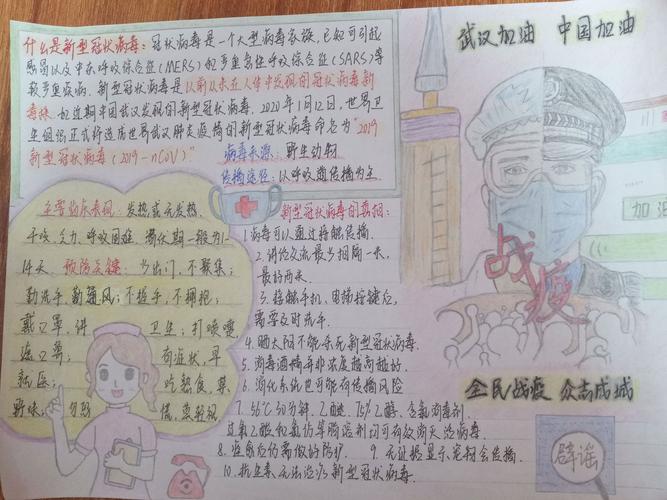 什么是新型冠状病毒：冠状病毒是一个大型病毒家族，已知可引起
感冒以及中东呼吸综合征(MERS)和严重急性呼吸综合征(SARS)等
较严重疾病．新型冠状病毒是以前从未在人体中发现的冠状病毒新
毒株．如近期中国武汉发现的新型冠状病毒．2020年1月12日，世界卫
生组织正式将造成世界武汉肺炎疫情的新型冠状病毒命名为"2019
新型冠状病毒（2019-nCoV）"
病毒来源：野生动物
传播途径：以呼吸道传播为主.
主要临床表现：发热或无发热.
干咳、乏力、呼吸困难 潜伏期一般为1-
14天 预防关键：少出门，不聚集；
勤洗手，勤通风；不握手，不拥抱；
戴口罩，讲 卫生；打喷嚏，
遮口鼻； 有症状，早
就医； 吃熟食，禁
野味； 勿恐 慌，莫轻视
新型冠状病毒的真相：
1.病毒可以通过接触传播.
2.讲话交流最少相隔一米，
最好两米.
3.接触手扒、电梯按键后，
需要及时洗手.
4.晒太阳不能杀死新型冠状病毒.
5.消毒酒精并非浓度越高越好.
6.消化系统也可能有传播风险
7.56℃30分钟，乙醚，75%乙醇、含氯消毒剂.
过氧乙酸和氯仿等脂溶剂均可有效灭活病毒.
8.治愈后仍需做好防护. 9.无证据显示宠物会传播.
10.抗生素无法治疗新型冠状病毒.
武汉加油 中国加油
加油
战疫
全民战疫 众志成城
辟谣